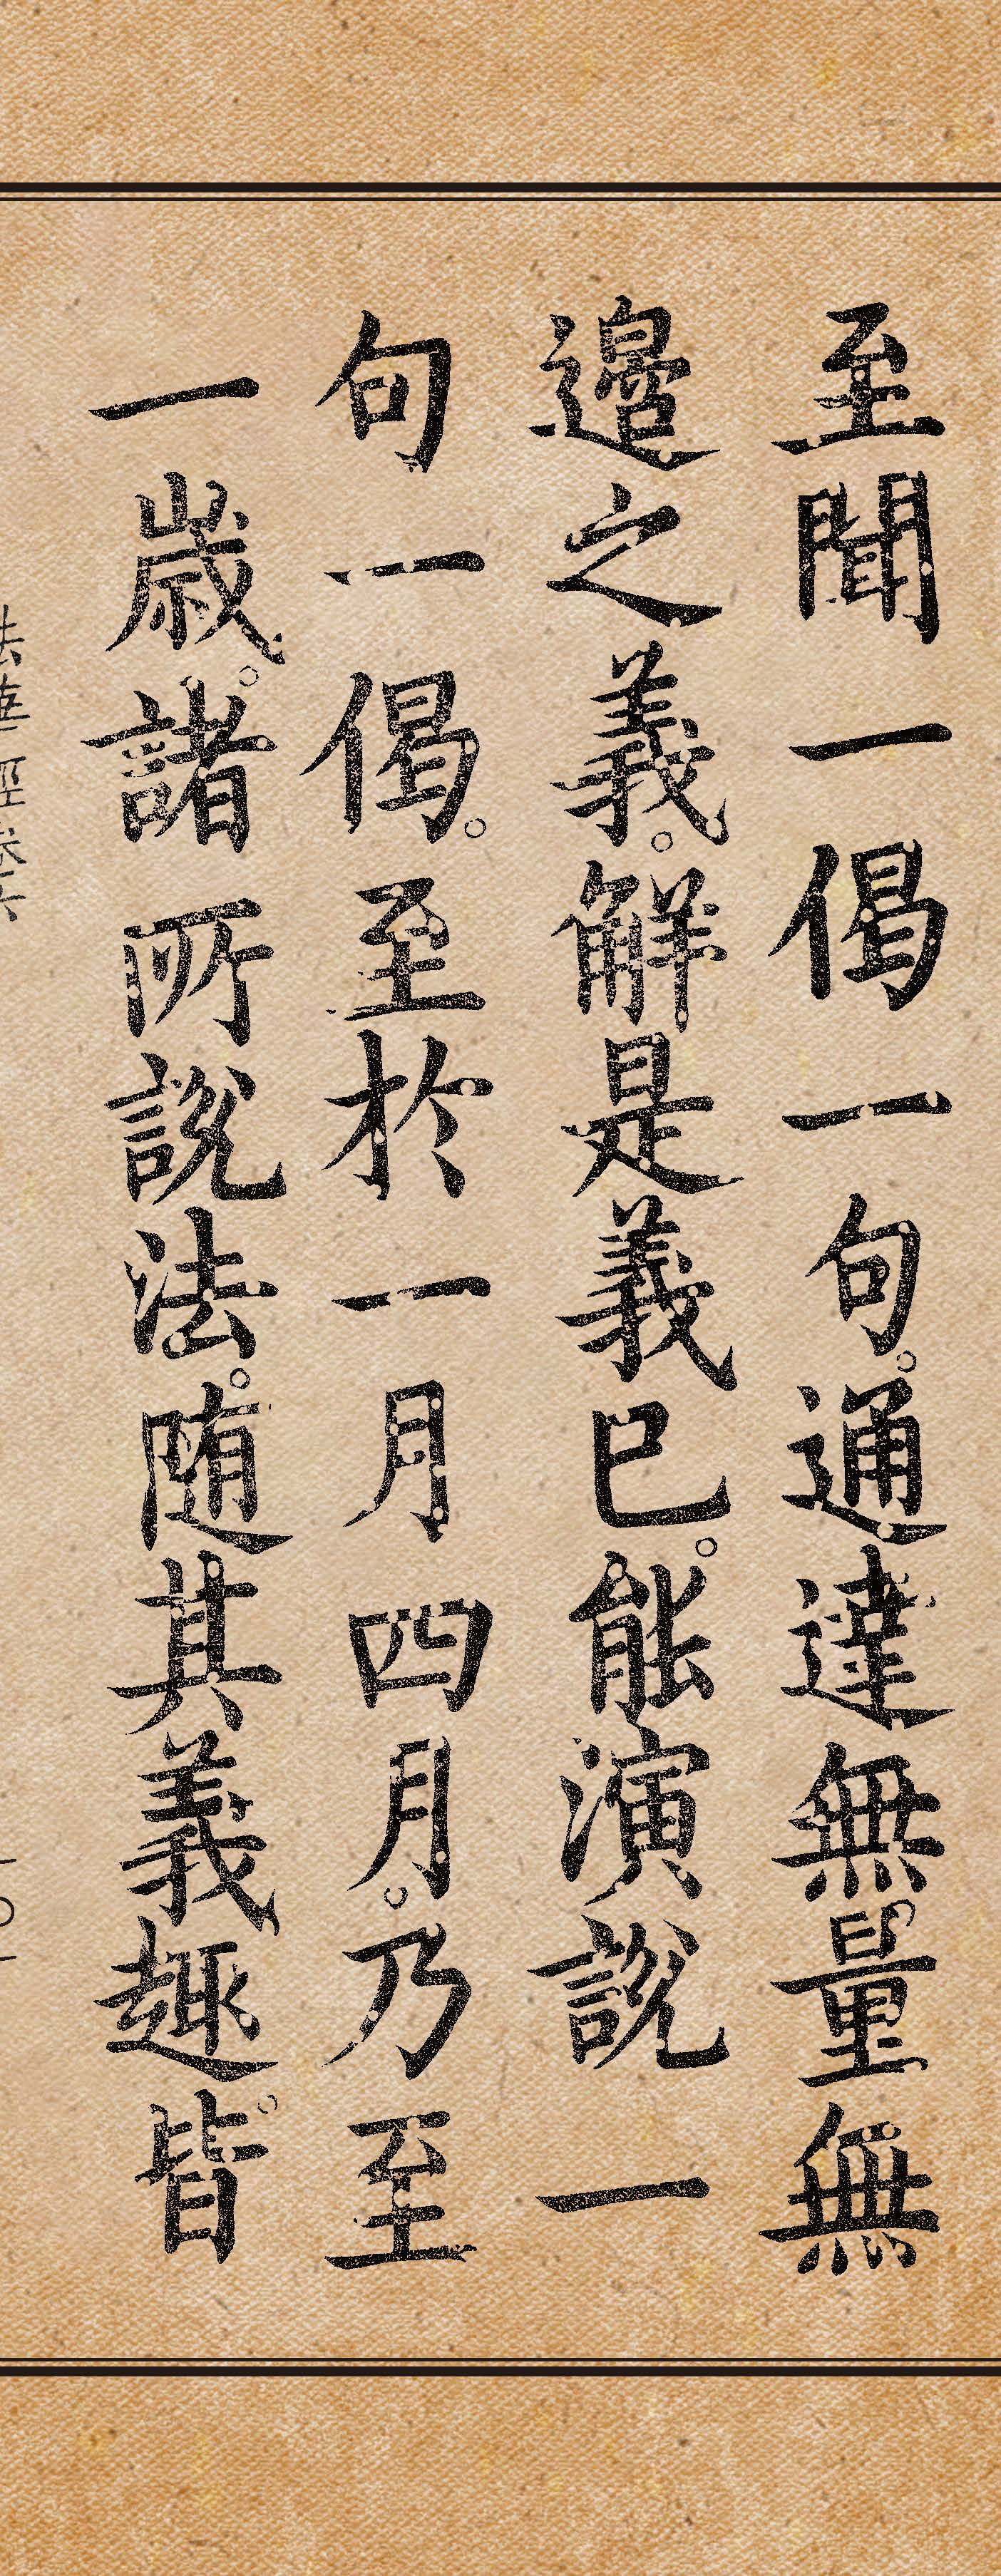 至聞一偈一句。通達無量無
邊之義。解是義已。能演說一
句一偈。至於一月四月。乃至
一歲。諸所說法。隨其義趣。皆